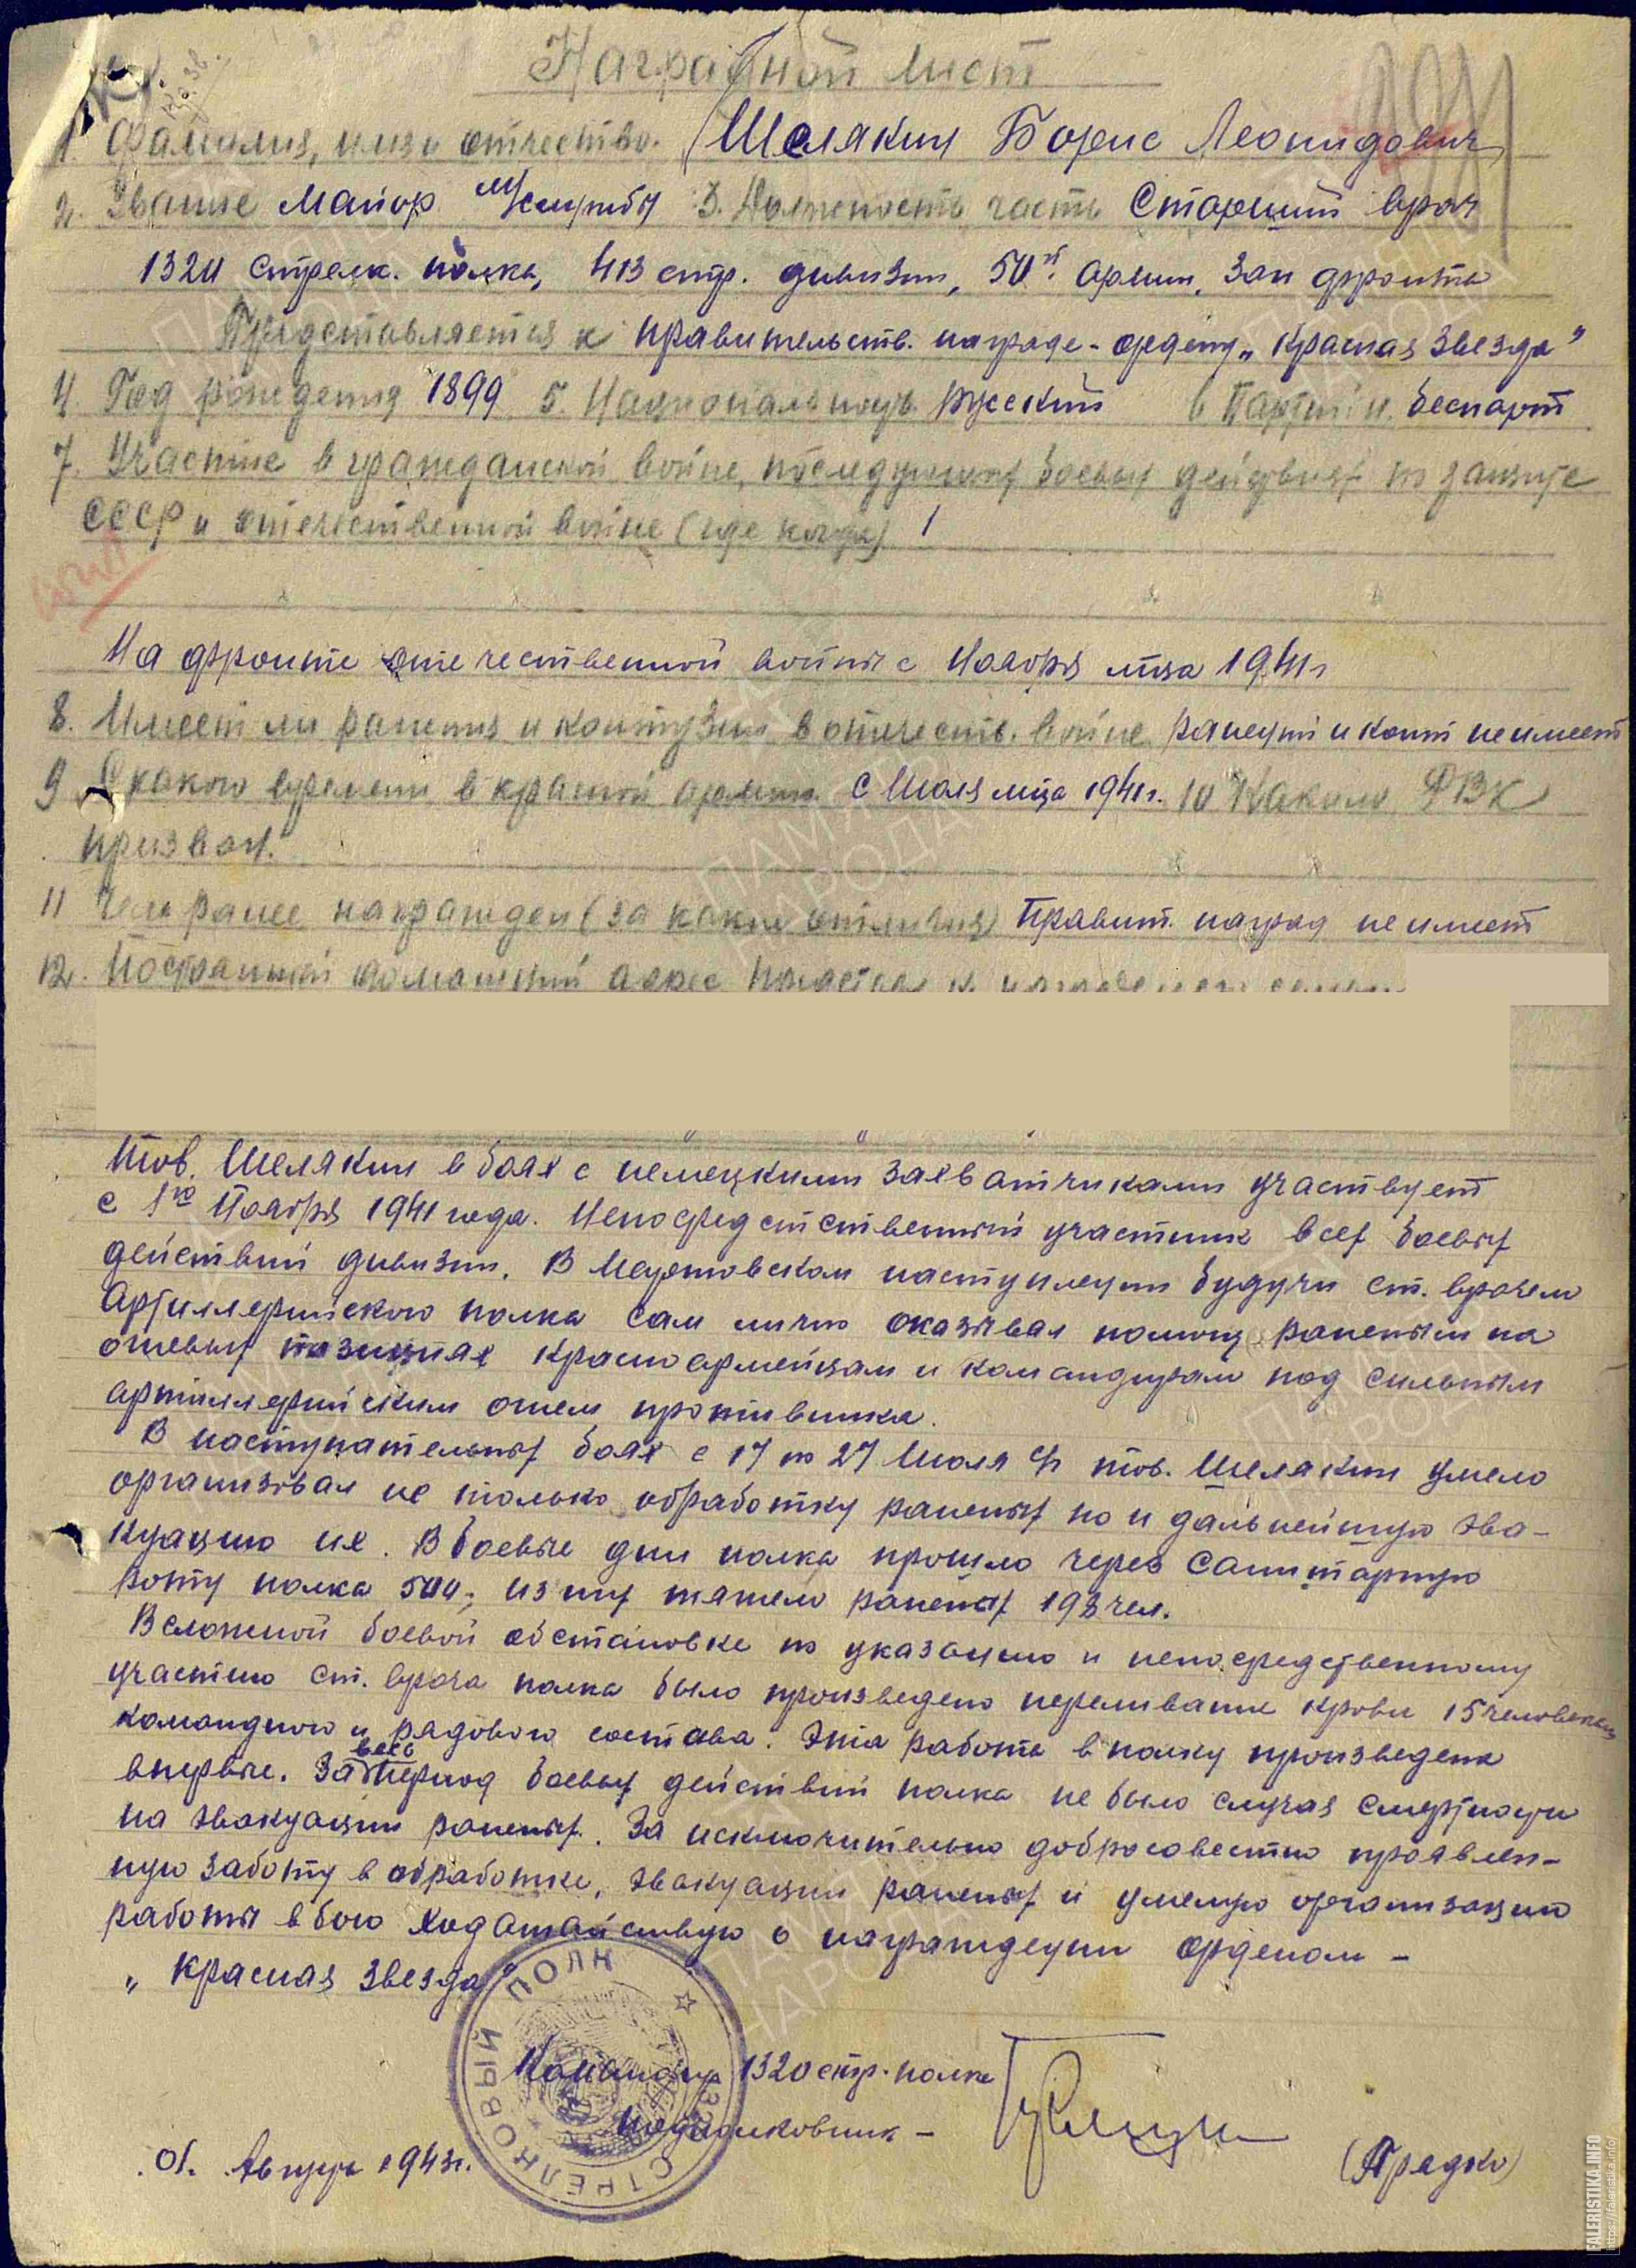 Наградной лист
1. Фамилия, имя и отчество. Шелякин Борис Леонидович
2. Звание Майор м/службы 3. Должность, часть Старший врач
1320 стрелк. полка, 413 стр. дивизии, 50й армии, Зап фронта
Представляется к правительств. награде - ордену „Красная Звезда"
4. Год рождения 1899 5. Национальность русский 6 Партийн. беспарт
7. Участие в гражданской войне, последующих боевых действиях по защите
СССР и отечественной войне (где когда)
На фронте отечественной войны с Ноября м-ца 1941 г
8. Имеет ли ранения и контузии в отечеств. войне ранений и конт не имеет
9 С какого времени в красной армии с Июля м-ца 1941 г. 10 Каким РВК
призван.
11 Чем ранее награжден (за какие отличия) Правит. наград не имеет
12. Постоянный домашний адрес
Тов. Шелякин в боях с немецкими захватчиками участвует
с 1го Ноября 1941 года. Непосредственный участник всех боевых
действий дивизии. В Мартовском наступлении будучи ст. врачем
Артиллерийского полка сам лично оказывал помощь раненым на
огневых позициях красноармейцам и командирам под сильным
артиллерийским огнем противника.
В наступательных боях с 17 по 27 Июля с/г тов. Шелякин умело
организовал не только обработку раненых но и дальнейшую эва-
куацию их. В боевые дни полка прошло через Санитарную
роту полка 500, из них тяжело раненых 193 чел.
В сложной боевой обстановке по указанию и непосредственному
участию ст. врача полка было произведено переливание крови 15 человекам
командного и рядового состава. Эта работа в полку произведена
впервые. За весь период боевых действий полка не было случая смертности
на эвакуации раненых. За исключительно добросовестно проявлен-
ную заботу в обработке, эвакуации раненых и умелую организацию
работы в бою ходатайствую о награждении орденом -
„Красная Звезда"
СТРЕЛКОВЫЙ ПОЛК
Командир 1320 стр. полка
подполковник -
(Прядко)
01. Августа 1943 г.
ПАМЯТЬ НАРОДА
FALERISTIKA.INFO
https://faleristika.info/